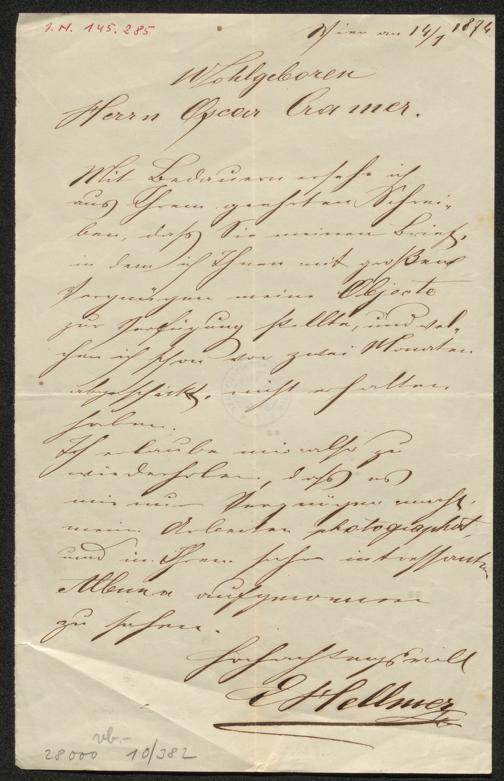 I.N. 145.285
Wien am 14/7 1874
Wohlgeboren
Herrn Oscar Cramer.
Mit Bedauern ersehe ich
aus Ihrem geehrten Schrei-
ben, daß Sie meinen Brief,
in dem ich Ihnen mit großem
Vergnügen meine Objecte
zur Verfügung stellte, und wel-
chen ich schon vor zwei Monaten
abgeschickt, nicht erhalten
haben.
Ich erlaube mir also zu
wiederholen, daß es
mir nur Vergnügen macht,
meine Arbeiten photographirt,
und in Ihrem sehr intressanten
Album aufgenommen
zu sehen.
Hochachtungsvoll
E Hellmer
vb.-
28000 10/382